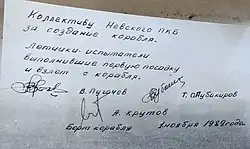 Коллективу Невского ПКБ
за создание корабля.
Летчики-испытатели
выполнившие первую посадку
и взлет с корабля.
В. Пугачев Т. О. Аубакиров
А. Крутов
Борт корабля 1 ноября 1989 года